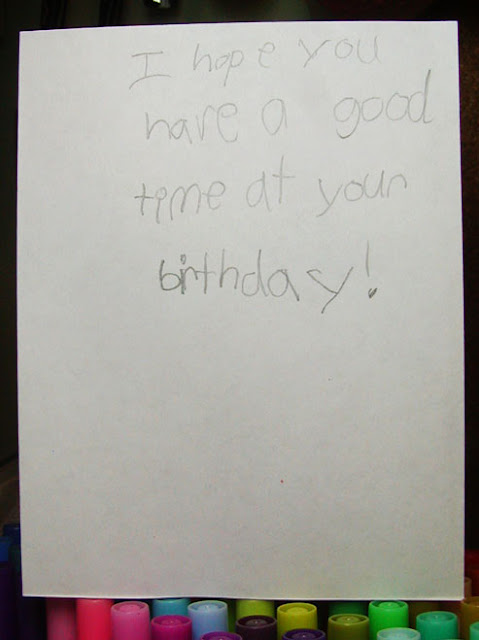 I hope you
have a good
time at your
birthday!